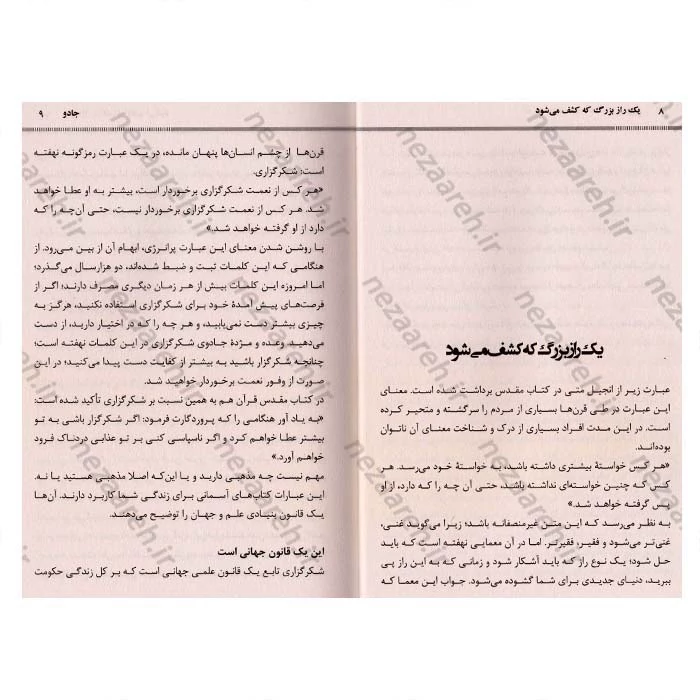 ۸ یک راز بزرگ که کشف می‌شود
یک راز بزرگ که کشف می‌شود
عبارت زیر از انجیل متی در کتاب مقدس برداشت شده است. معنای
این عبارت در طی قرن‌ها بسیاری از مردم را سرگشته و متحیر کرده
است. در این مدت افراد بسیاری از درک و شناخت معنای آن ناتوان
بوده‌اند.
«هر کس خواستهٔ بیشتری داشته باشد، به خواستهٔ خود می‌رسد. هر
کس که چنین خواسته‌ای نداشته باشد، حتی آن چه را که دارد، از او
پس گرفته خواهد شد.»
به نظر می‌رسد که این متن غیرمنصفانه باشد؛ زیرا می‌گوید غنی،
غنی‌تر می‌شود و فقیر، فقیرتر. اما در آن معمایی نهفته است که باید
حل شود؛ یک نوع راز که باید آشکار شود و زمانی که به این راز پی
ببرید، دنیای جدیدی برای شما گشوده می‌شود. جواب این معما که
جادو ۹
قرن‌ها از چشم انسان‌ها پنهان مانده، در یک عبارت رمزگونه نهفته
است: شکرگزاری.
«هر کس از نعمت شکرگزاری برخوردار است، بیشتر به او عطا خواهد
شد. هر کس از نعمت شکرگزاری برخوردار نیست، حتی آن‌چه را که
دارد از او گرفته خواهد شد.»
با روشن شدن معنای این عبارت پرانرژی، ابهام آن از بین می‌رود. از
هنگامی که این کلمات ثبت و ضبط شده‌اند، دو هزارسال می‌گذرد؛
اما امروزه این کلمات بیش از هر زمان دیگری مصرف دارند؛ اگر از
فرصت‌های پیش آمدهٔ خود برای شکرگزاری استفاده نکنید، هرگز به
چیزی بیشتر دست نمی‌یابید، و هر چه را که در اختیار دارید، از دست
می‌دهید. وعده و مژدهٔ جادوی شکرگزاری در این کلمات نهفته است؛
چنانچه شکرگزار باشید به بیشتر از کفایت دست پیدا می‌کنید؛ در این
صورت از وفور نعمت برخوردار خواهید شد.
در کتاب مقدس قرآن هم به همین نسبت بر شکرگزاری تأکید شده است:
«به یاد آور هنگامی را که پروردگارت فرمود: اگر شکرگزار باشی به تو
بیشتر عطا خواهم کرد و اگر ناسپاسی کنی بر تو عذابی دردناک فرود
خواهم آورد.»
مهم نیست چه مذهبی دارید و یا این‌که اصلا مذهبی هستید یا نه.
این عبارات کتاب‌های آسمانی برای زندگی شما کاربرد دارند. آن‌ها
یک قانون بنیادی علم و جهان را توضیح می‌دهند.
این یک قانون جهانی است
شکرگزاری تابع یک قانون علمی جهانی است که بر کل زندگی حکومت
nezaareh.ir